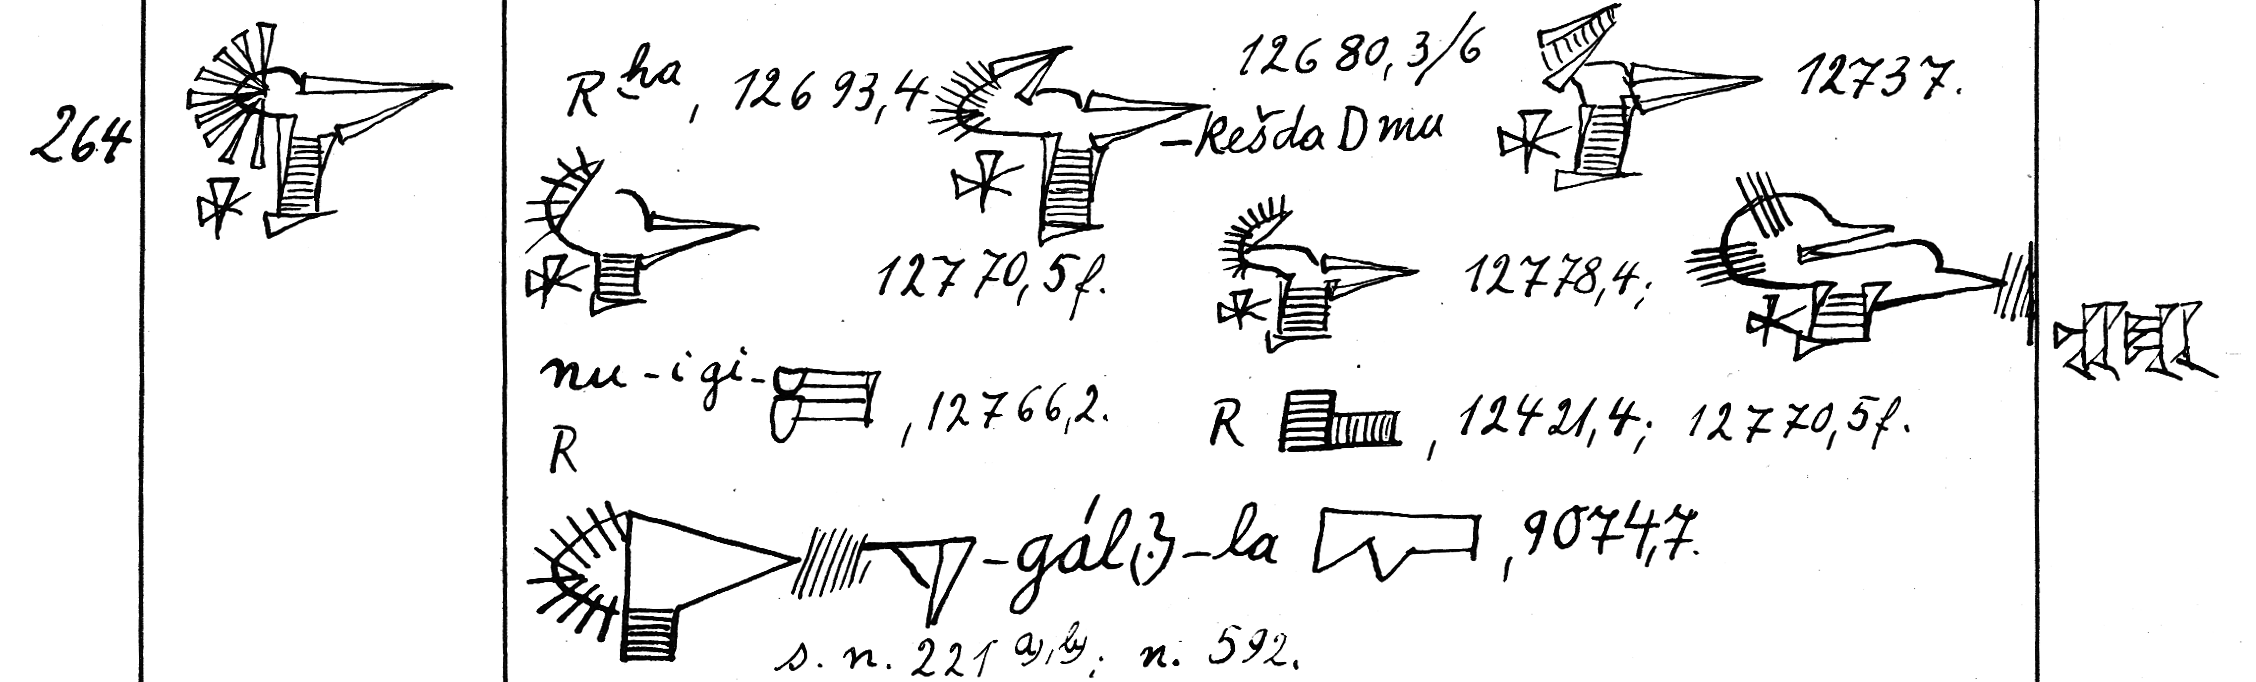 264
R ha, 12693,4 12680,3/6 12737.
-Kešda D mu
12770,5f. 12778,4;
nu-igi- , 12766,2. R , 12421,4; 12770,5f.
R
-gál(?)-la , 9074,7.
s. n. 221 a), b); n. 592.